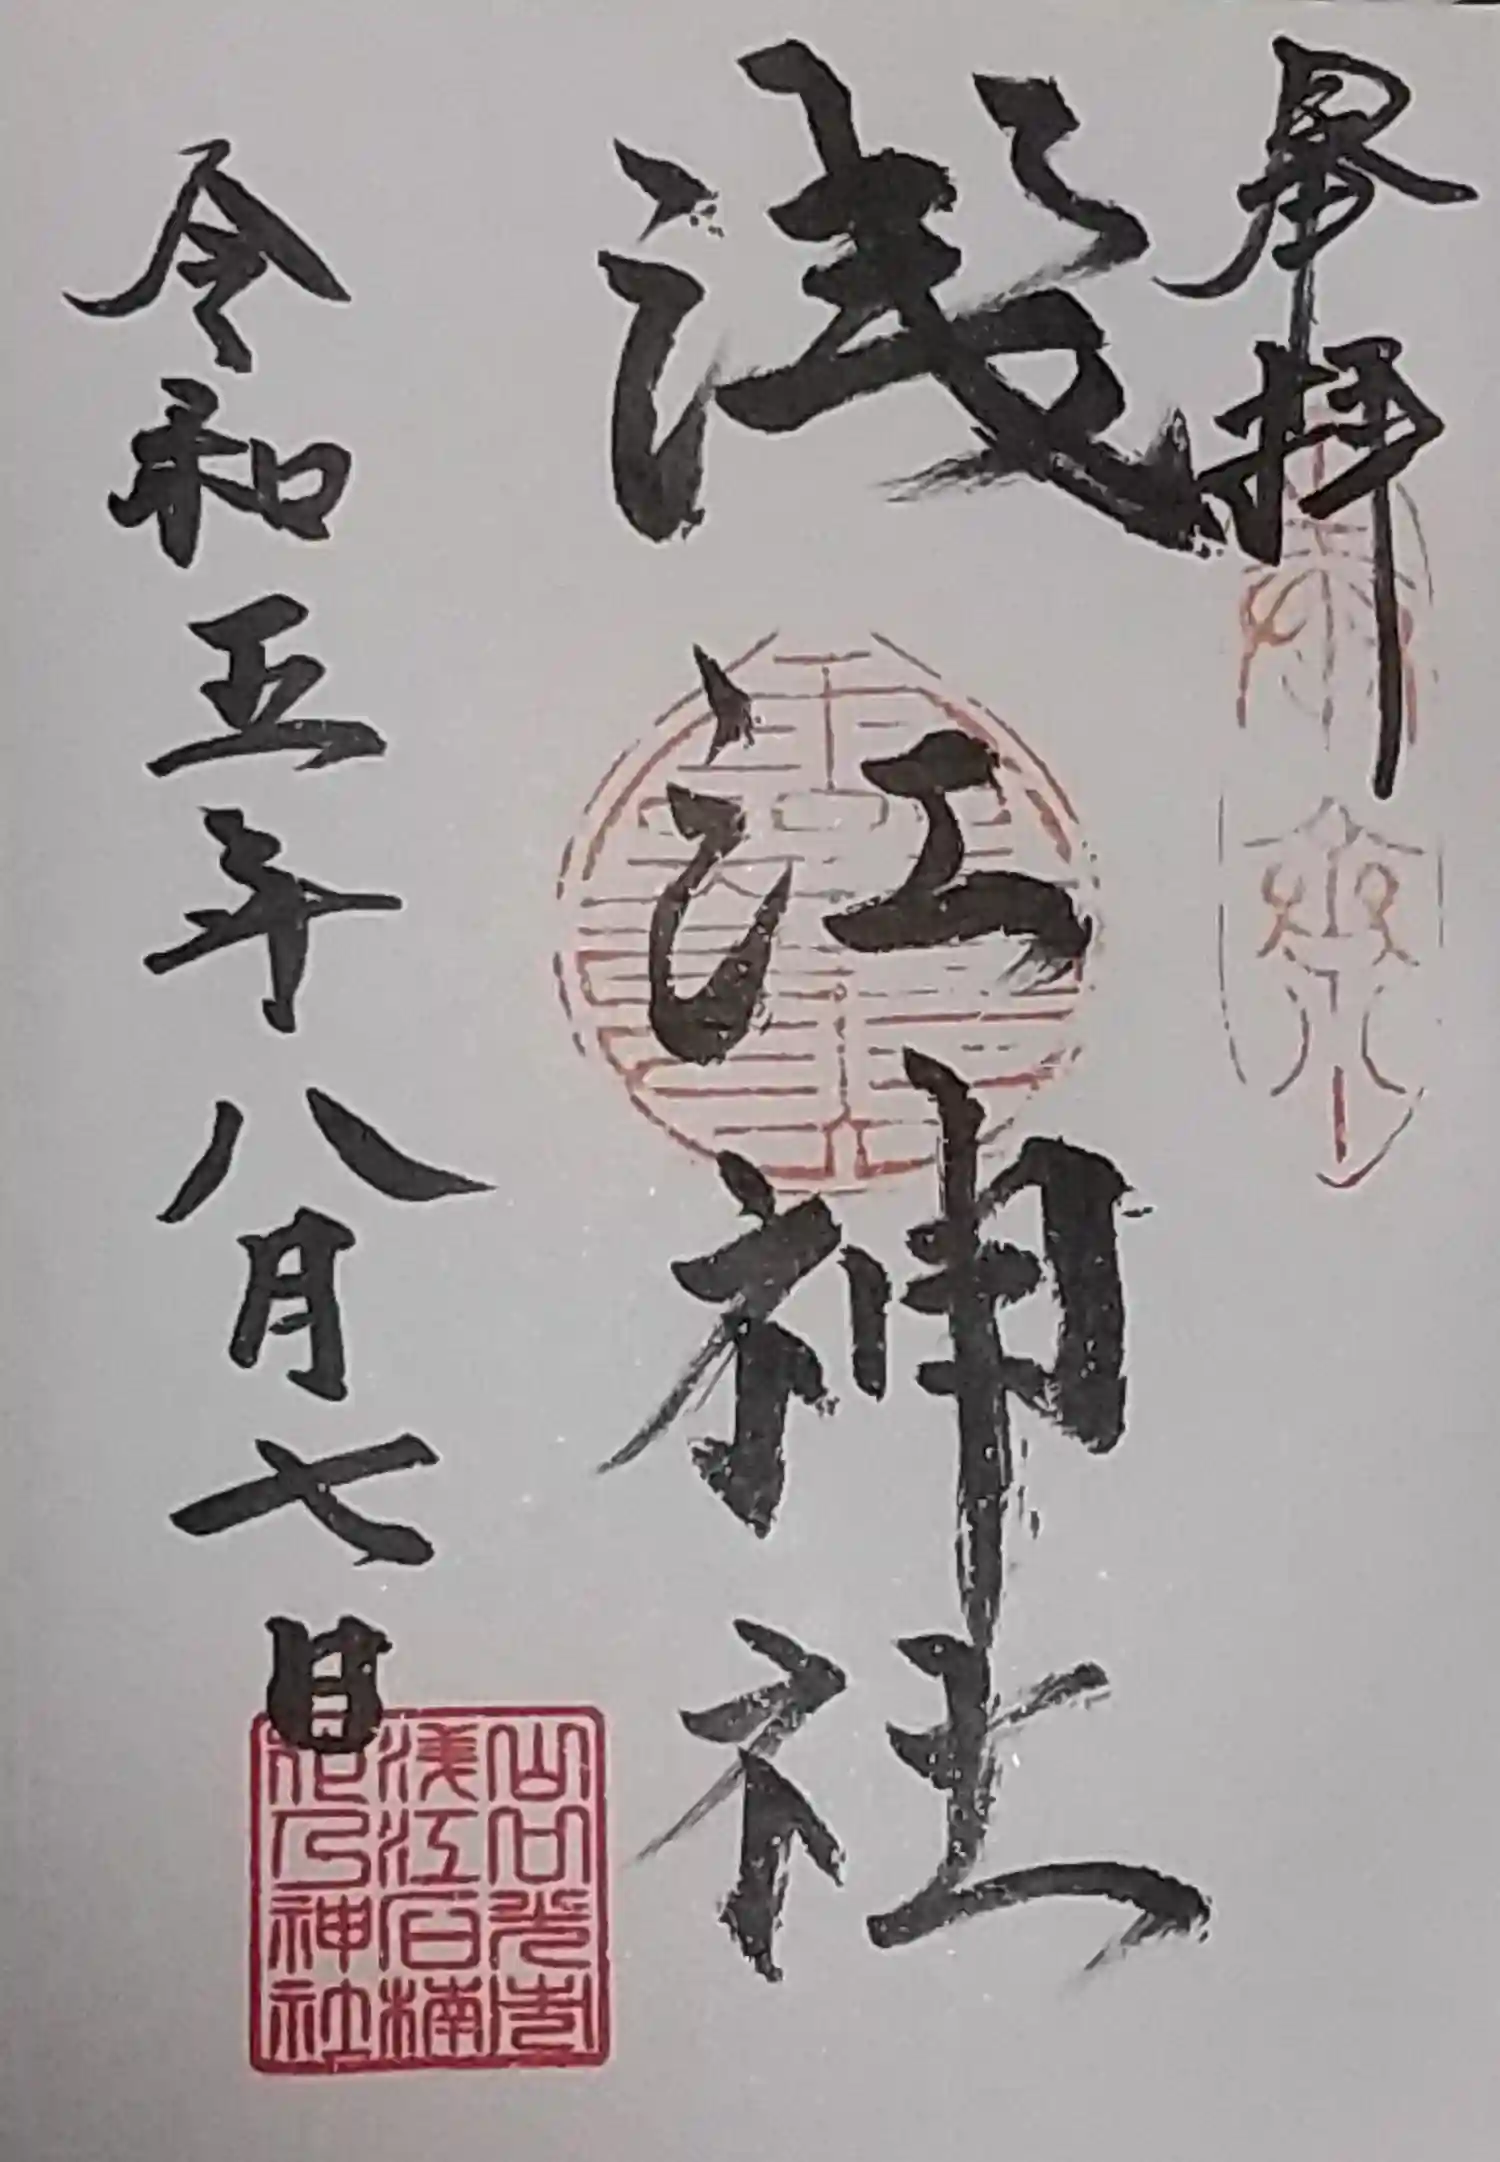 奉拝
浅江神社
令和五年八月七日
山口光市
浅江石楠
花乃神社